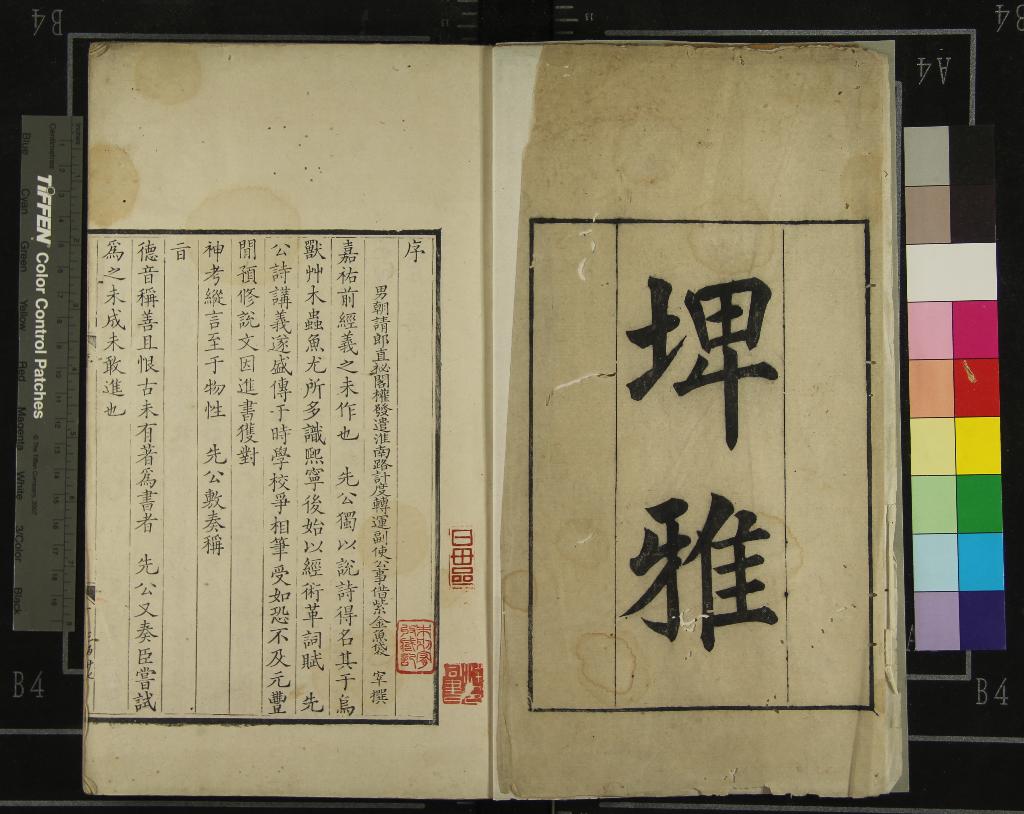 埤雅
序
男朝請郎直祕閣權發遣淮南路計度轉運副使公事借紫金魚袋 宰撰
嘉祐前經義之未作也 先公獨以說詩得名其于鳥
獸艸木蟲魚尤所多識熙寧後始以經術革詞賦 先
公詩講義遂盛傳于時學校爭相筆受如恐不及元豐
閒預修說文因進書獲對
神考縱言至于物性 先公敷奏稱
旨
德音稱善且恨古未有著為書者 先公又奏臣嘗試
為之未成未敢進也
B4
B4
A4
B4
B4
TIFFEN Color Control Patches
© The Tiffen Company, 2007
Centimetres
Inches
Blue
Cyan
Green
Yellow
Red
Magenta
White
3/Color
Black